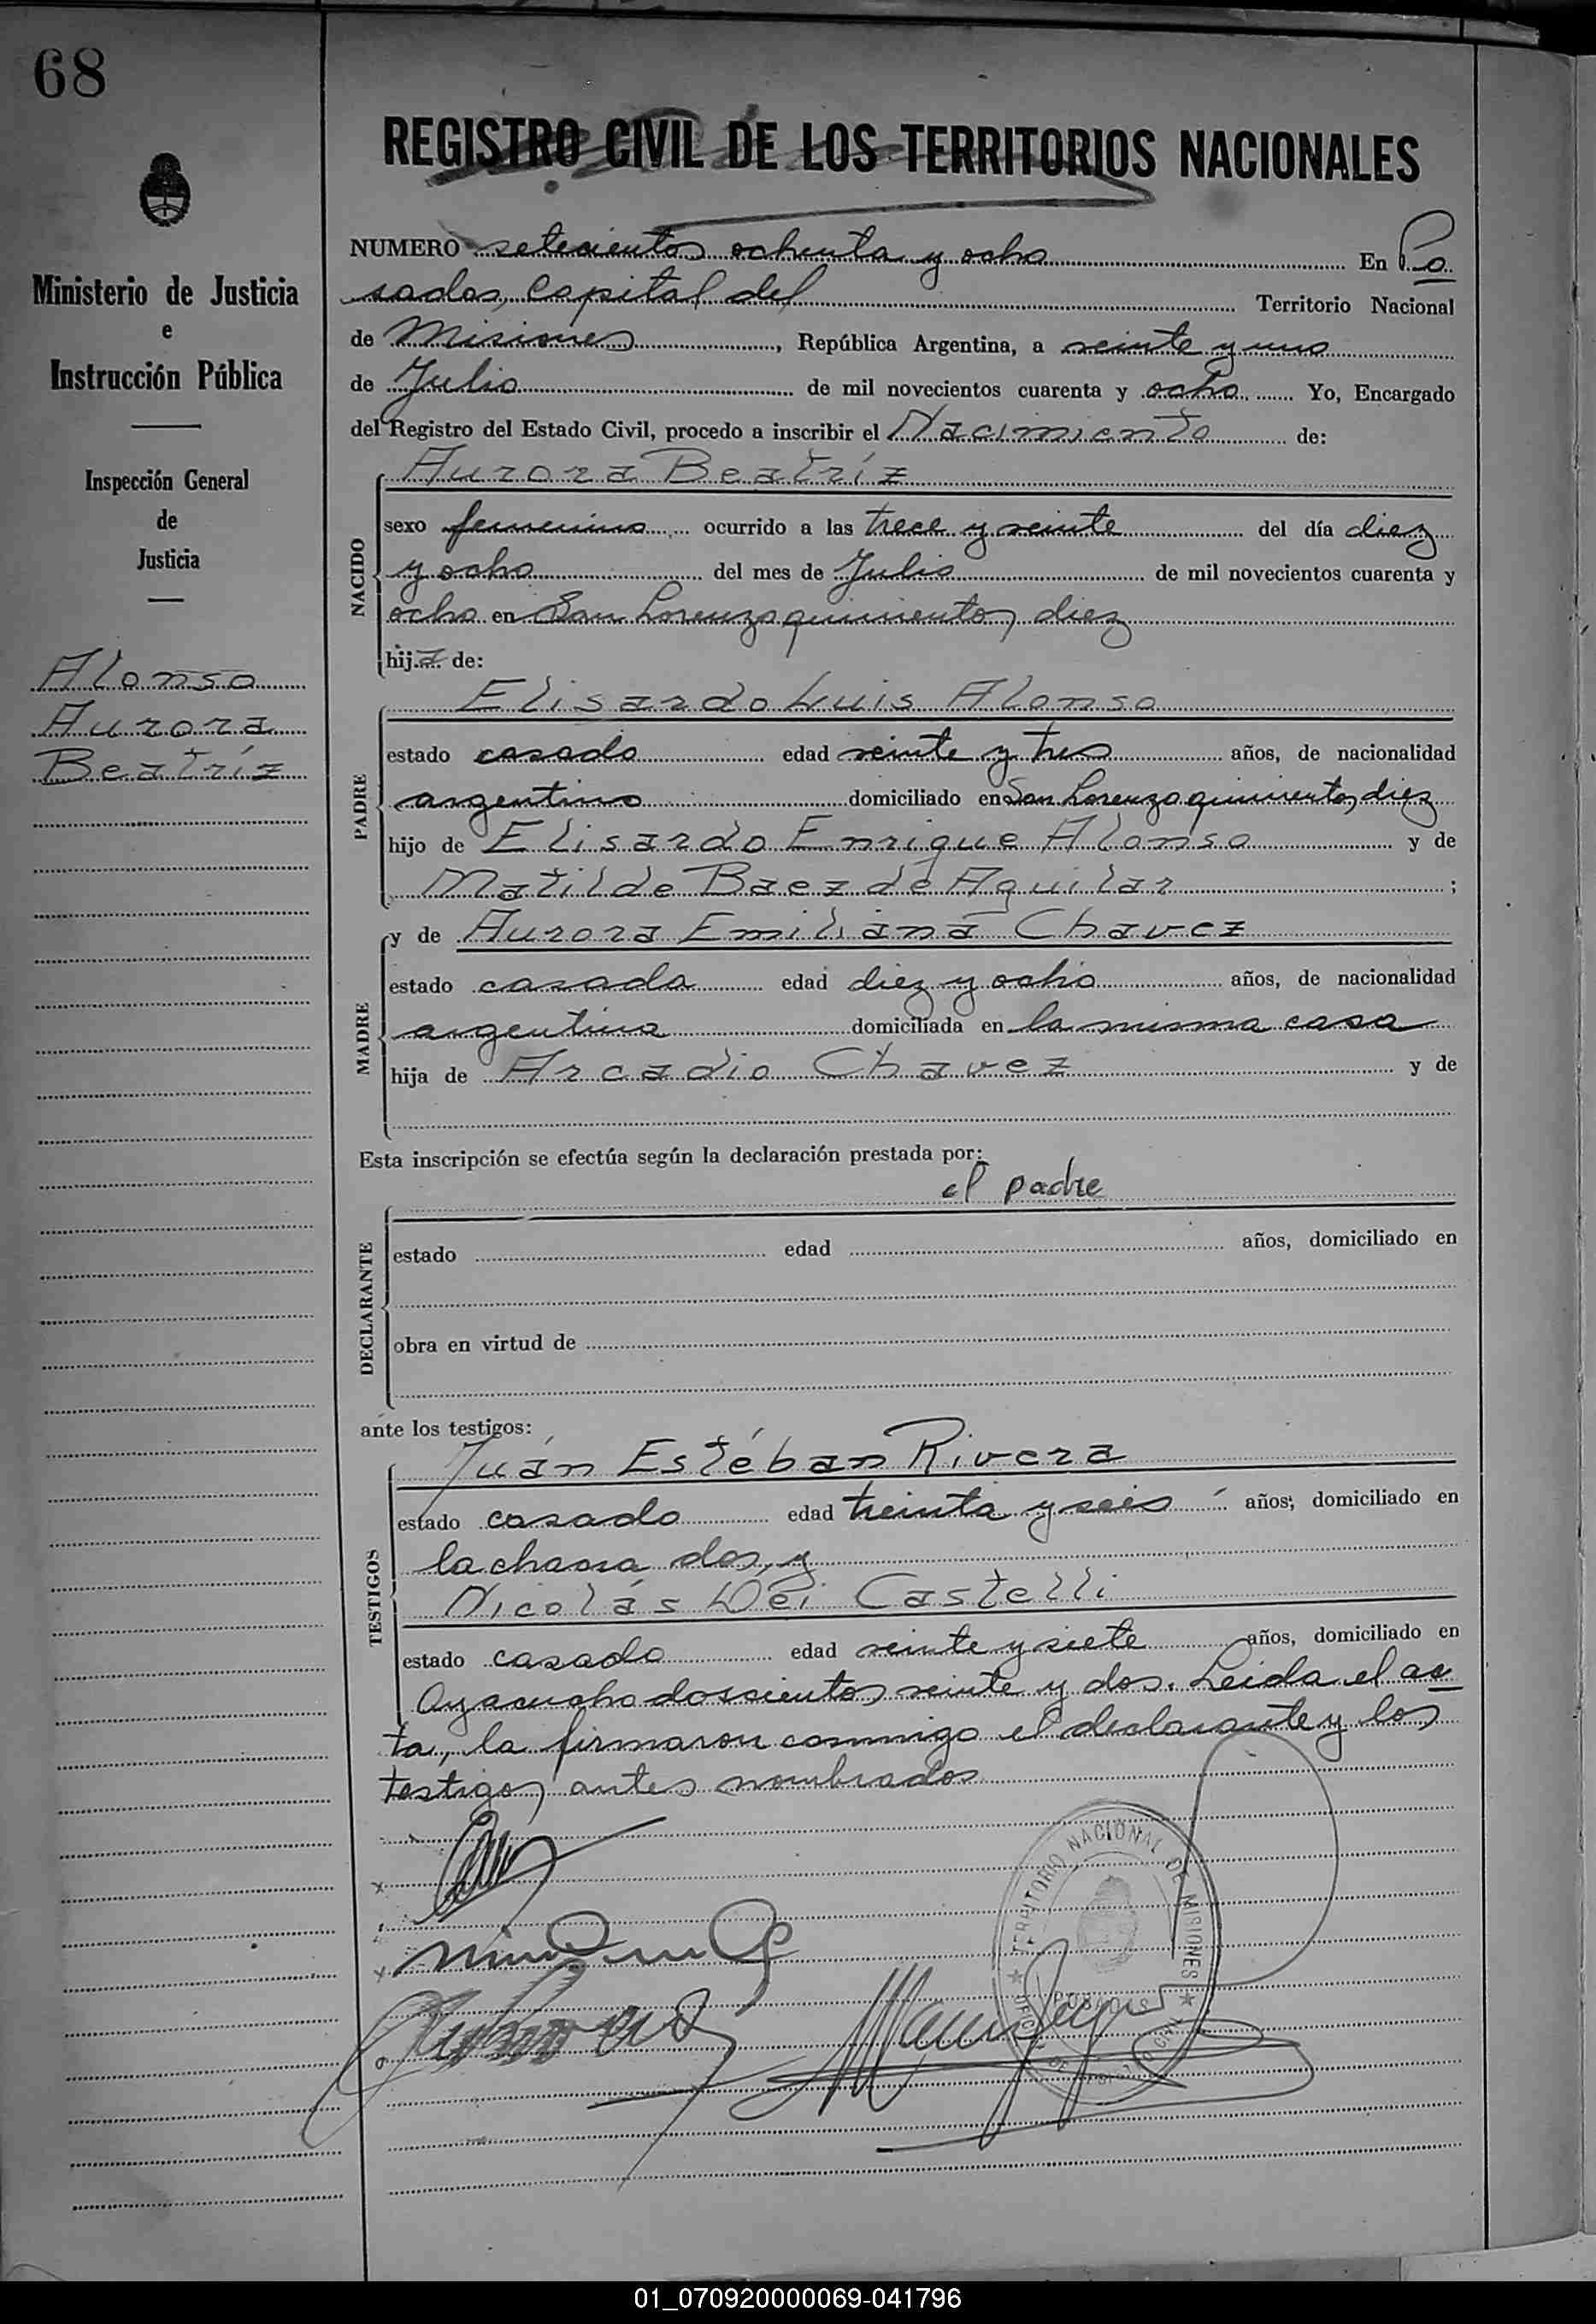 68
REGISTRO CIVIL DE LOS TERRITORIOS NACIONALES
NUMERO setecientos ochenta y ocho En Po
sadas, Capital del Territorio Nacional
de Misiones, República Argentina, a veinte y uno
de Julio de mil novecientos cuarenta y ocho Yo, Encargado
del Registro del Estado Civil, procedo a inscribir el Nacimiento de:
Ministerio de Justicia
e
Instrucción Pública
Inspección General
de
Justicia
Alonso
Aurora
Beatríz
NACIDO
Aurora Beatríz
sexo femenino ocurrido a las trece y veinte del día diez
y ocho del mes de Julio de mil novecientos cuarenta y
ocho en San Lorenzo quinientos diez
hija de:
PADRE
Elisardo Luis Alonso
estado casado edad veinte y tres años, de nacionalidad
argentino domiciliado en San Lorenzo quinientos diez
hijo de Elisardo Enrique Alonso y de
Matilde Baez de Aguilar ;
MADRE
y de Aurora Emiliana Chavez
estado casada edad diez y ocho años, de nacionalidad
argentina domiciliada en la misma casa
hija de Arcadio Chavez y de
Esta inscripción se efectúa según la declaración prestada por:
el padre
DECLARANTE
estado edad años, domiciliado en
obra en virtud de
ante los testigos:
TESTIGOS
Juán Estéban Rivera
estado casado edad treinta y seis años, domiciliado en
la chacra dos, y
Nicolás Dei Castelli
estado casado edad veinte y siete años, domiciliado en
Ayacucho doscientos veinte y dos. Leida el ac
ta, la firmaron conmigo el declarante y los
testigos antes nombrados
TERRITORIO NACIONAL DE MISIONES
POSADAS
01_070920000069-041796